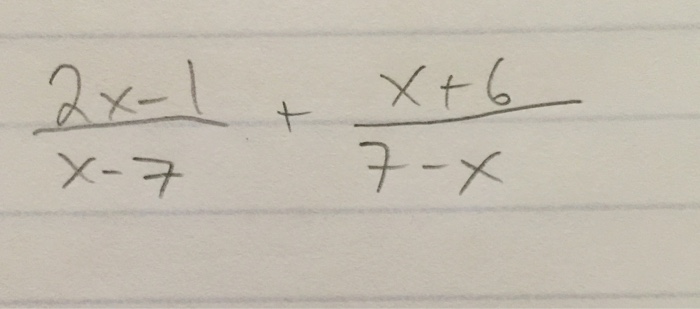 2x-1 / x-7 + x+6 / 7-x